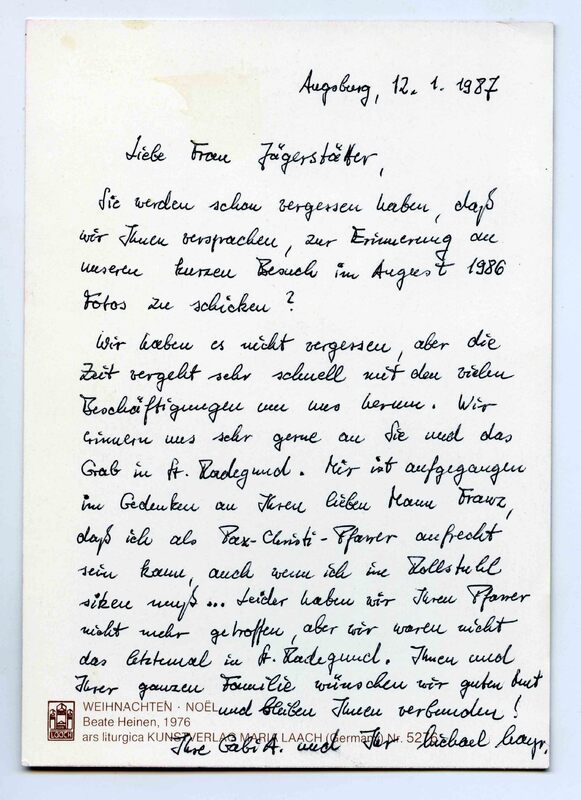 Augsburg, 12. 1. 1987
Liebe Frau Jägerstätter,
Sie werden schon vergessen haben, daß
wir Ihnen versprachen, zur Erinnerung an
unseren kurzen Besuch im August 1986
Fotos zu schicken?
Wir haben es nicht vergessen, aber die
Zeit vergeht sehr schnell mit den vielen
Beschäftigungen um uns herum. Wir
erinnern uns sehr gerne an Sie und das
Grab in St. Radegund. Mir ist aufgegangen
im Gedenken an Ihren lieben Mann Franz,
daß ich als Pax-Christi-Pfarrer aufrecht
sein kann, auch wenn ich im Rollstuhl
sitzen muß... Leider haben wir Ihren Pfarrer
nicht mehr getroffen, aber wir waren nicht
das letztemal in St. Radegund. Ihnen und
Ihrer ganzen Familie wünschen wir guten Mut
WEIHNACHTEN · NOËL und bleiben Ihnen verbunden!
Beate Heinen, 1976
LAACH ars liturgica KUNSTVERLAG MARIA LAACH (Germany) Nr. 5276
Ihre Gabi A. und Ihr Michael Mayr.